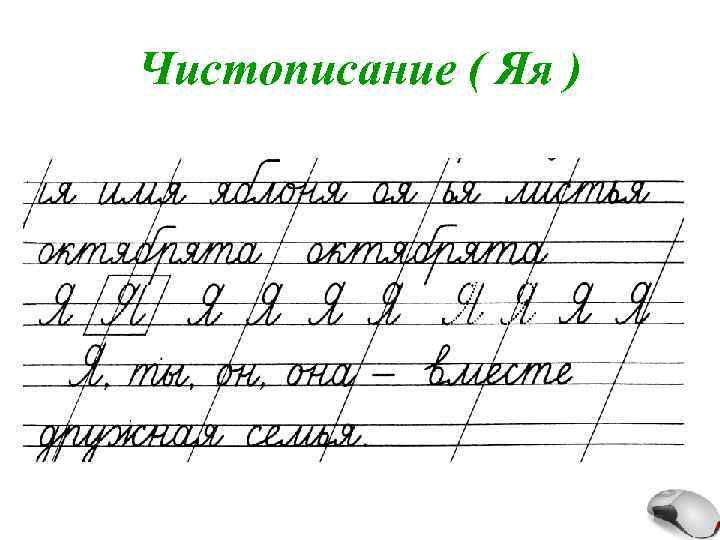 Чистописание ( Яя )
ья имя яблоня оя ья листья
октябрята октябрята
Я Я Я Я Я Я Я Я Я Я
Я, ты, он, она – вместе
дружная семья.